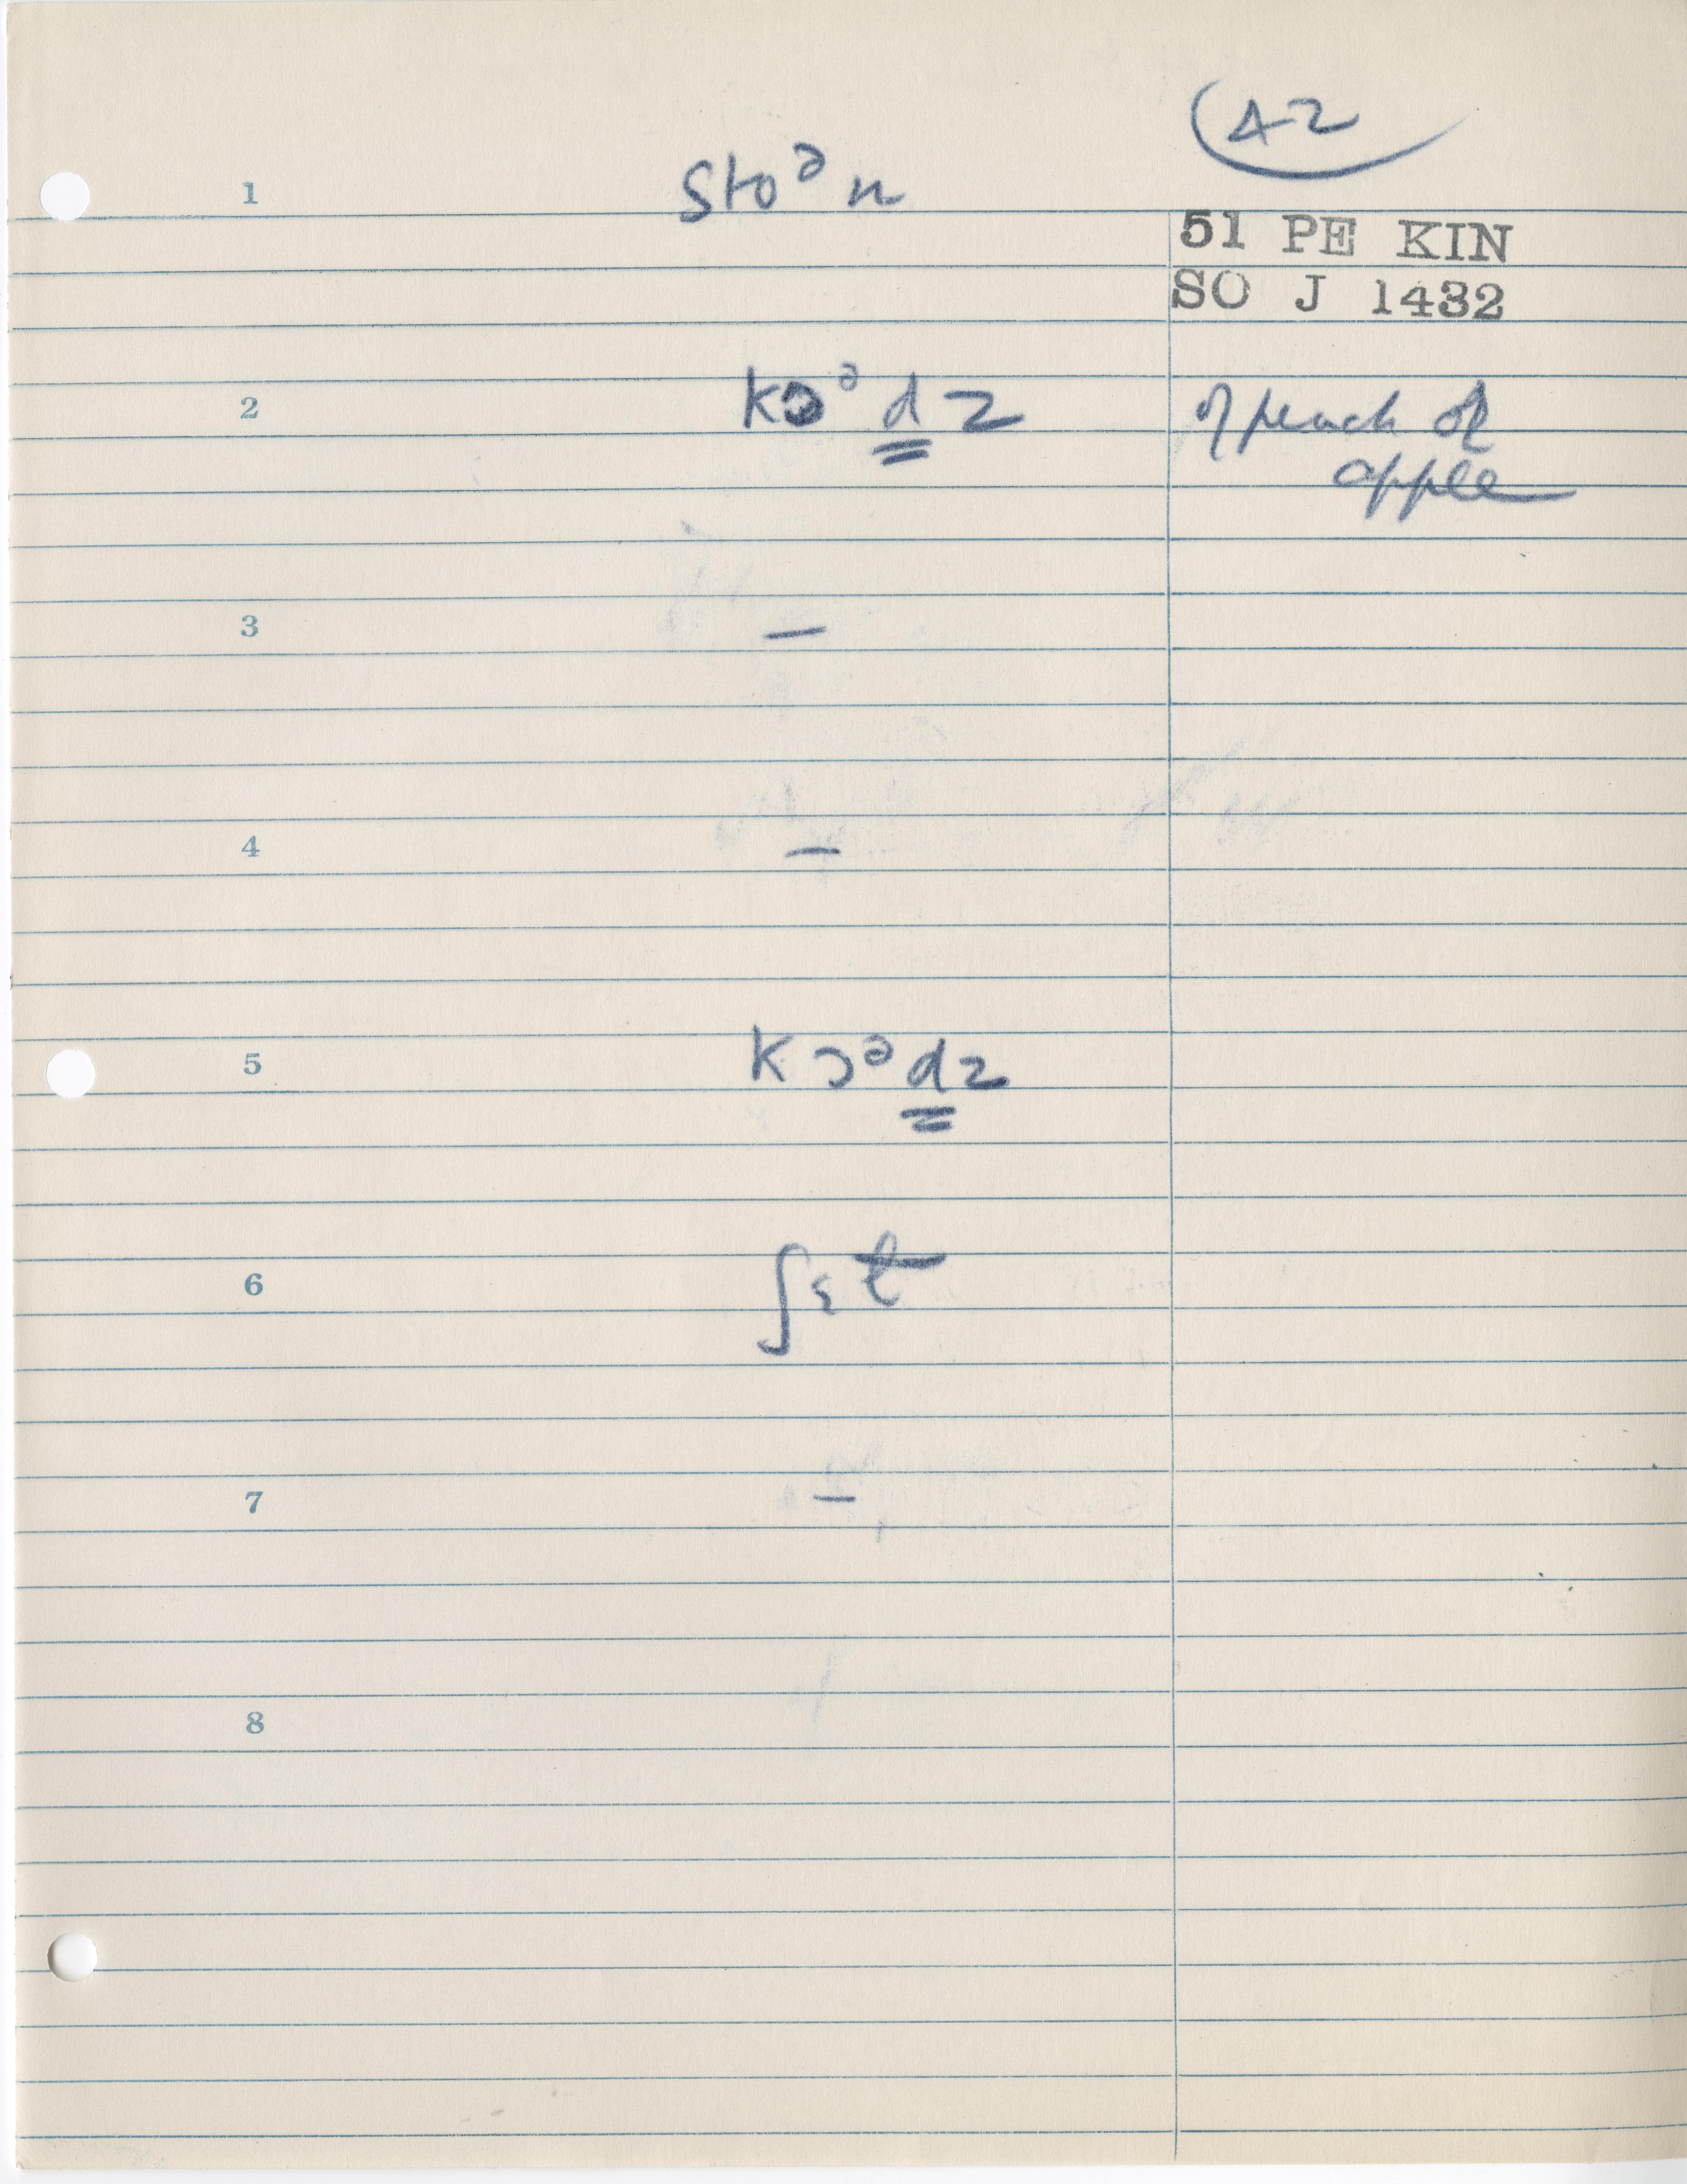 42
1 stoᵊn
51 PE KIN
SO J 1432
2 kɔᵊdz
of peach of
apple
3 –
4 –
5 kɔᵊdz
6 ʃɛt
7 –
8